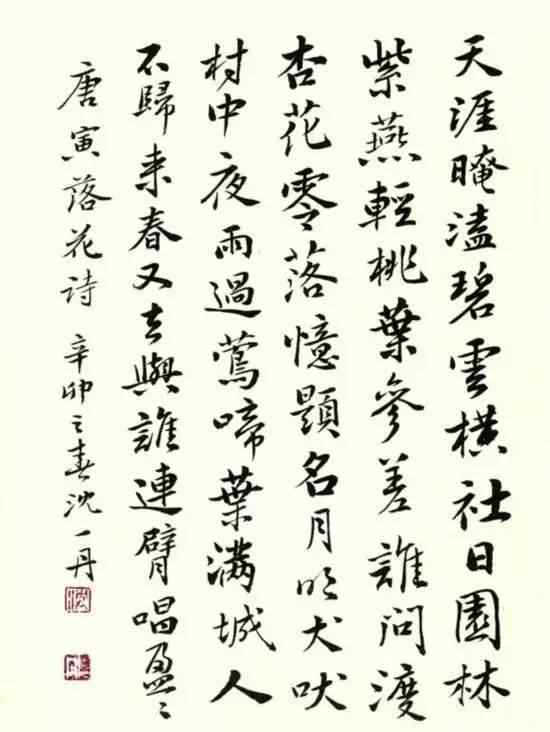 天涯晻溘碧雲橫社日園林
紫燕輕桃葉參差誰問渡
杏花零落憶題名月明犬吠
村中夜雨過鶯啼葉滿城人
不歸來春又去與誰連臂唱盈〻
唐寅落花诗 辛卯之春沈一丹